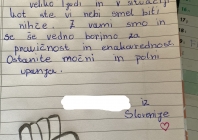 veliko ljudi in v situaciji
kot ste vi nebi smel biti
nihče. Z vami smo in
se še vedno borimo za
pravičnost in enakovrednost.
Ostanite močni in polni
upanja.
iz
Slovenije